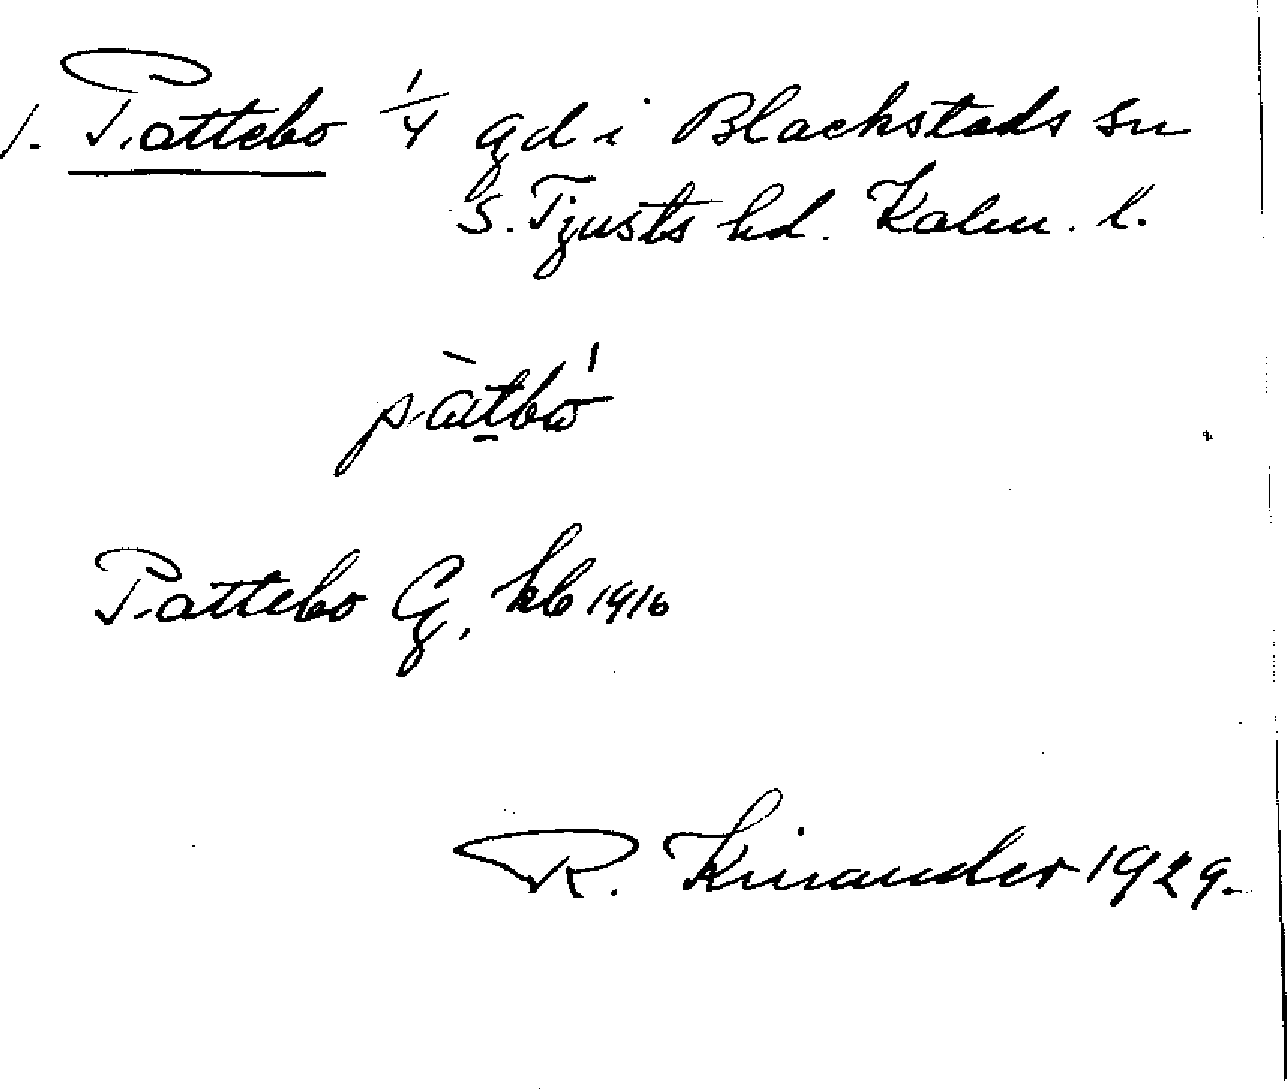 1. Pattebo 1/4 gd i Blackstads sn
S. Tjusts hd. Kalm. l.
pàtbo'
Pattebo G, kb 1916
R. Kinander 1929.